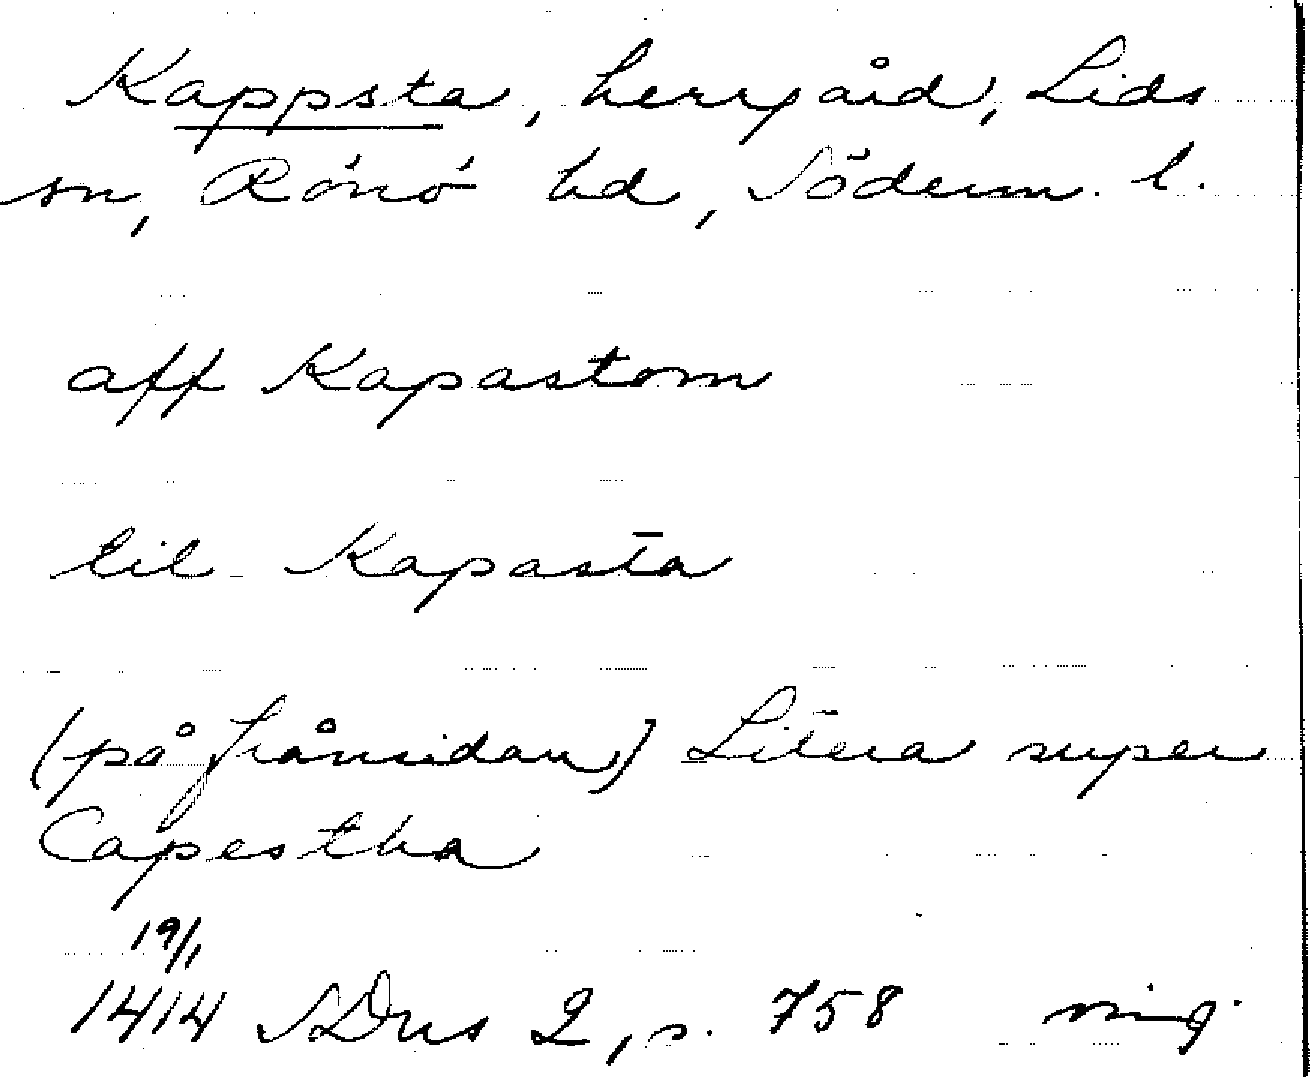 Kappsta, herrgård, Lids
sn, Rönö hd, Söderm. l.
aff Kapastom
til Kapasta
(på frånsidan) Litera super
Capestha
19/1
1414 SDns 2, s. 758